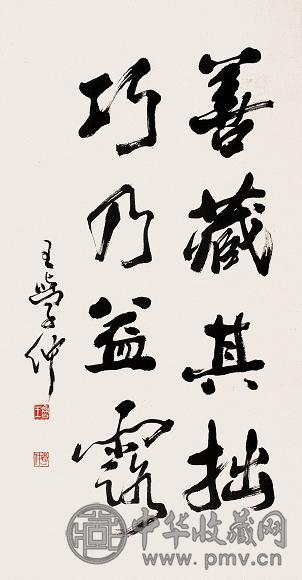 善藏其拙
巧乃益露
王學仲
中华收藏网
www.pmv.cn